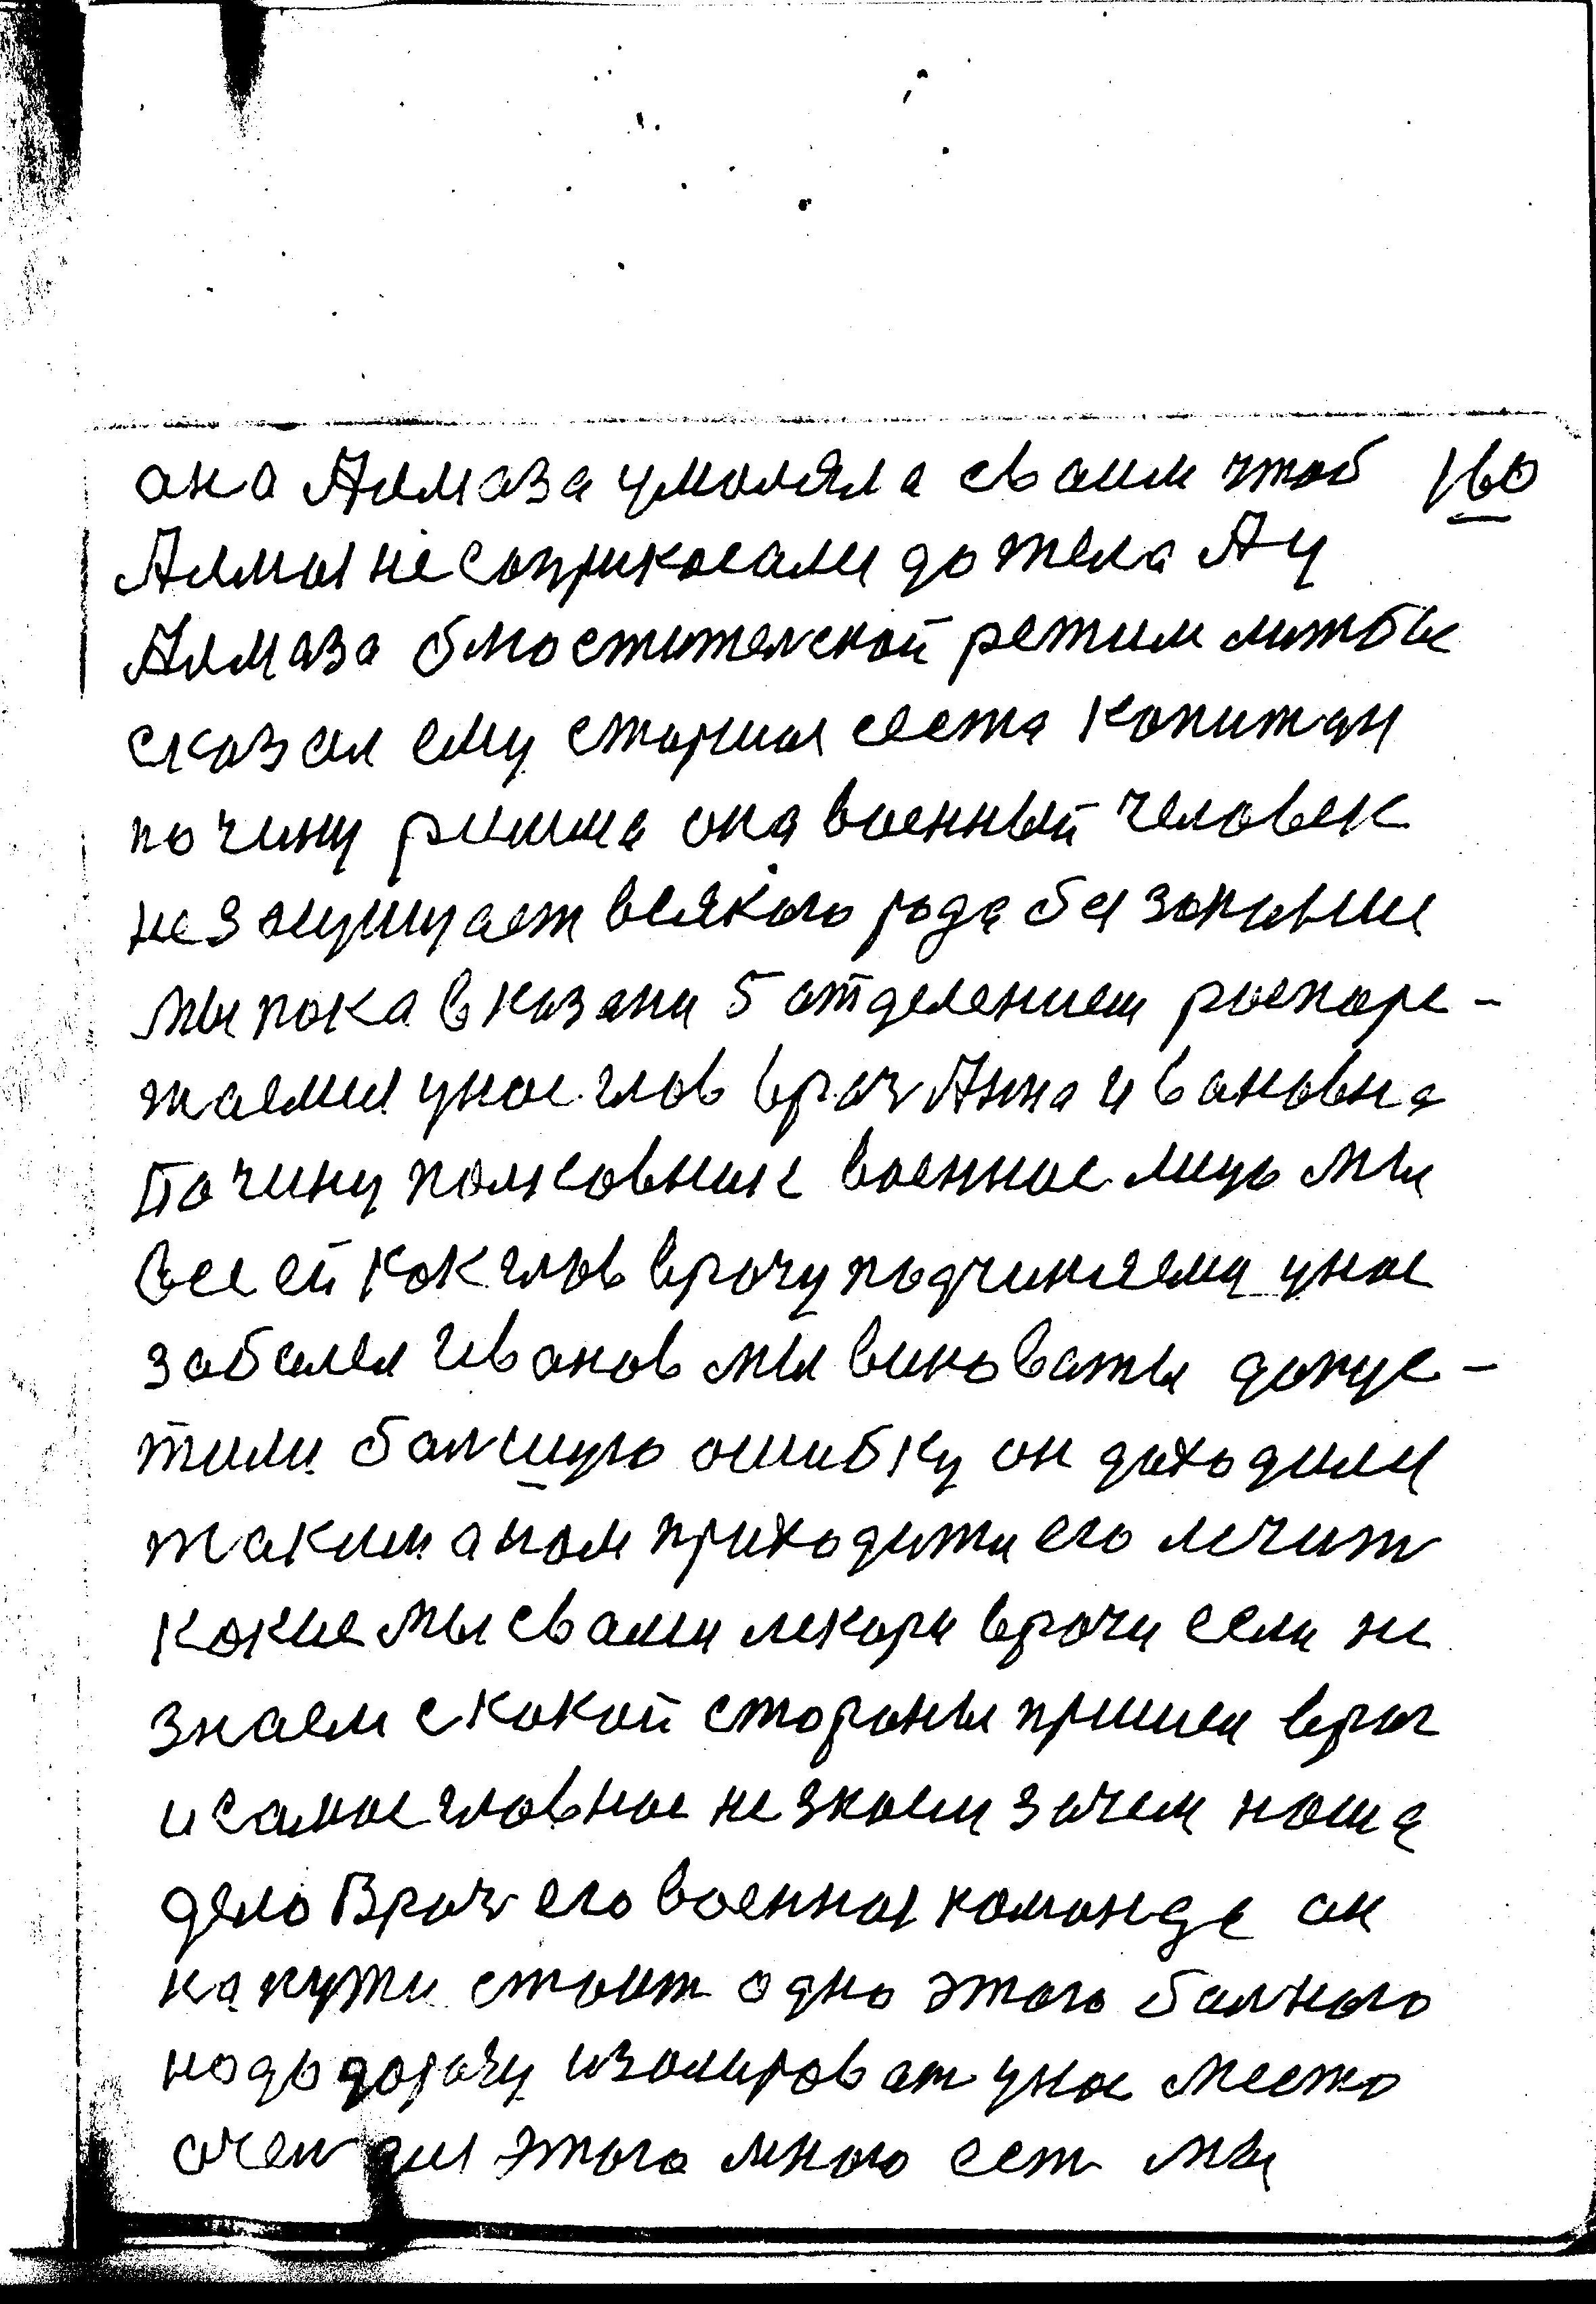 ана Алмаза умоляла сваим чтоб 160
Алмы не соприкосали до тела А у
Алмаза блюстителской режим литобы
сказал ему старшая сеста капитан
по чину римма она военный человек
не заступает всякого рода без
мы пока в казани 5 отделением роспоре-
жаемся унос глов врач Анна ивановна
По чину полковник военное лицо мы
все ей как глов врачу подчиняемся унос
забалел иванов мы виноваты допус-
тили балшую ошибку он доходили
таким аном приходити его лечит
какие мы свами лекари врачи если не
знаем с какой стораны пришел врач
и самое главное не знаем зачем наша
дело Врач его военная команде он
на пути стоит одно этого балного
надо дорогу изолироват унос место
очен для этого много ест мы